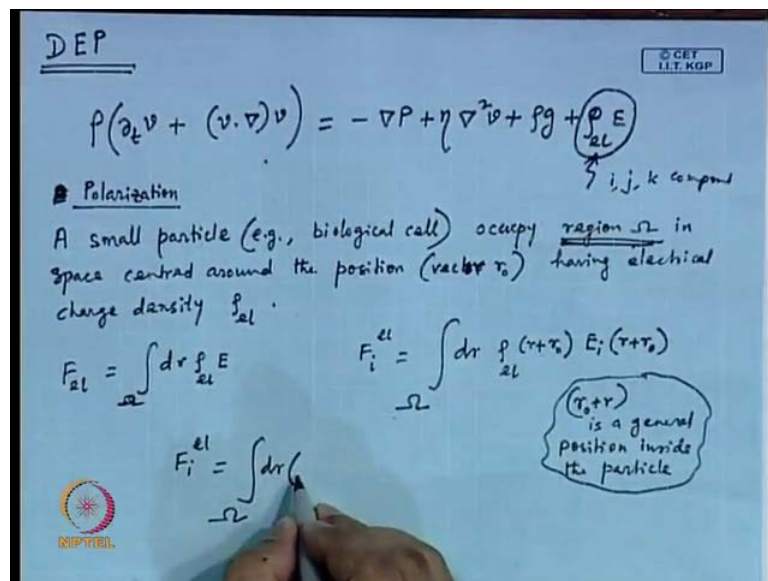 DEP
© CET
I.I.T. KGP
ρ(∂_t v + (v.∇)v) = -∇P + η∇²v + ρg + ρ_el E
i, j, k compond
Polarization
A small particle (e.g., biological cell) occupy region Ω in
space centrad around the position (vector r₀) having electrical
charge density ρ_el.
F_el = ∫_Ω dr ρ_el E
F_i^el = ∫_Ω dr ρ_el (r+r₀) E_i (r+r₀)
(r₀+r)
is a general
position inside
the particle
F_i^el = ∫_Ω dr (
NPTEL